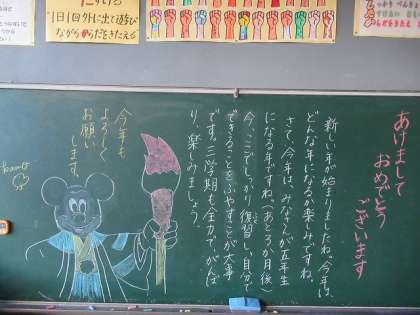 1日1回外に出て遊び
ながらからだをきたえる
あけまして
おめでとう
ございます
新しい年が始まりましたね。今年は、
どんな年になるか楽しみですね。
さて、今年は、みなさんが五年生
になる年ですね。あと3か月後
今、ここでしっかり復習し、自分で
できることをふやすことが大事
です。三学期も全力で、がんば
り、楽しみましょう。
今年も
よろしく
お願い
します。